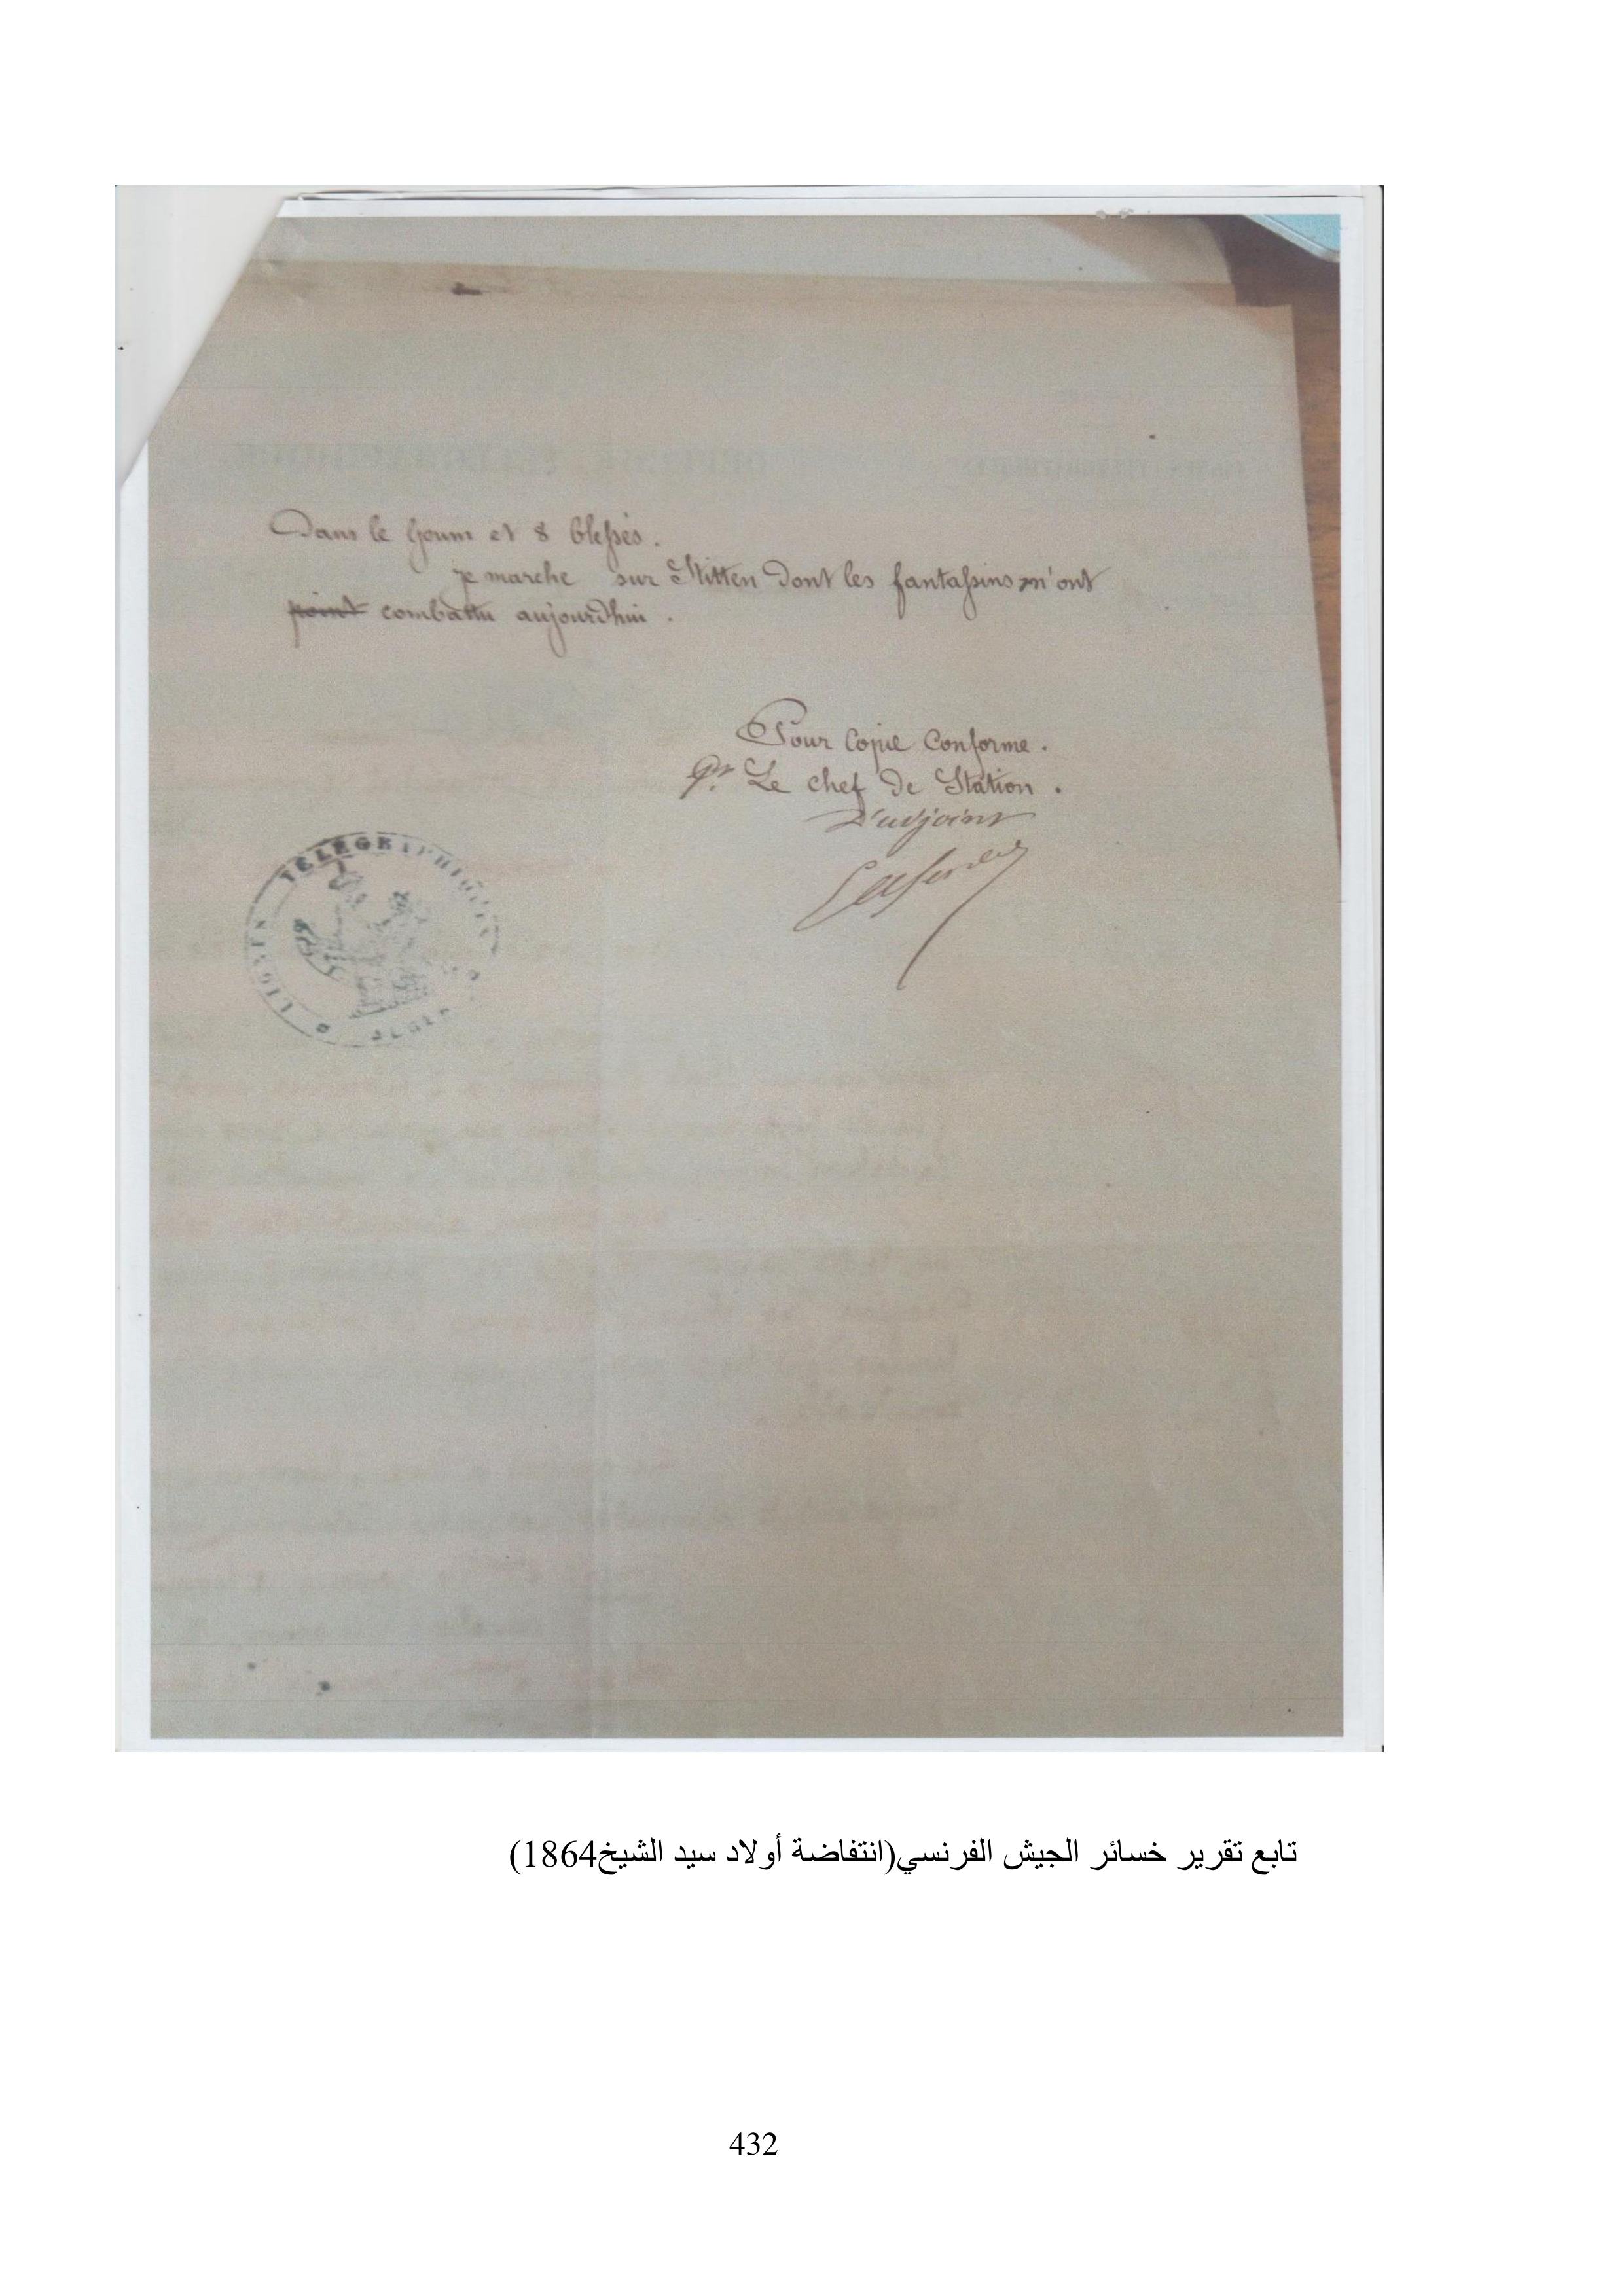 Dans le Goum et 8 blessés.
je marche sur Stitten dont les fantassins m'ont
point combattu aujourd'hui.
Pour Copie Conforme.
Pr Le chef de Station.
L'adjoint
LIGNES TÉLÉGRAPHIQUES
ALGER
تابع تقرير خسائر الجيش الفرنسي(انتفاضة أولاد سيد الشيخ1864)
432